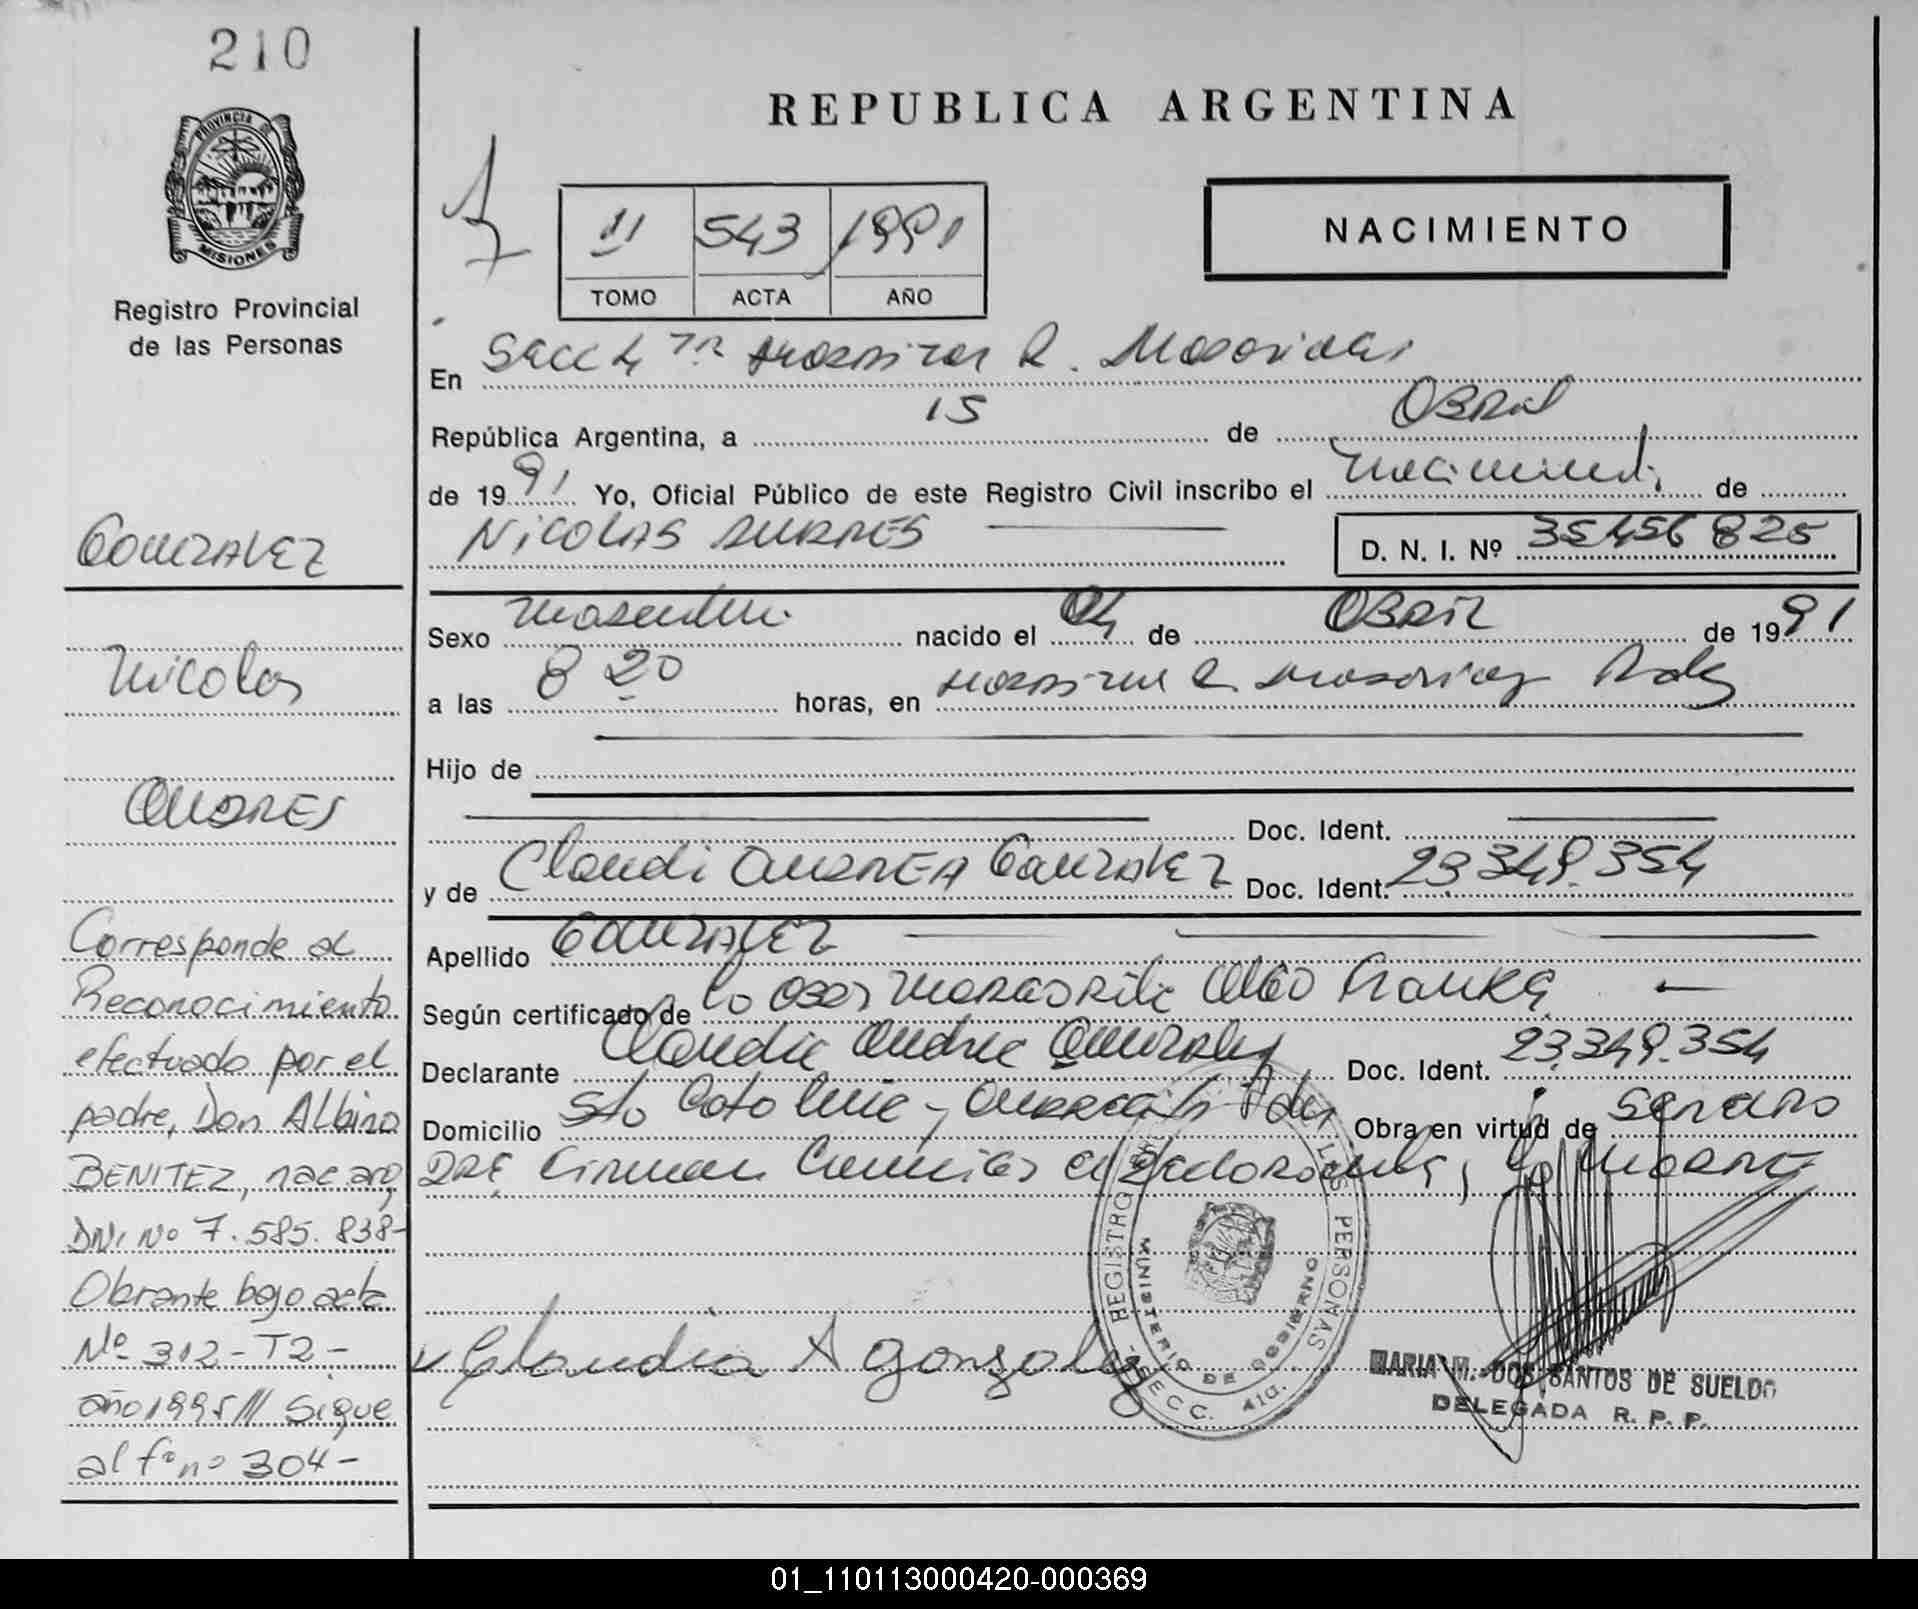 210
REPUBLICA ARGENTINA
PROVINCIA DE
MISIONES
Registro Provincial
de las Personas
11 543 1991
TOMO ACTA AÑO
NACIMIENTO
En Secc 41 R.
República Argentina, a 15 de ABRIL
de 1991 Yo, Oficial Público de este Registro Civil inscribo el nacimiento de
NICOLAS ANDRES D. N. I. Nº 35456825
Sexo masculino nacido el 04 de ABRIL de 1991
a las 8 20 horas, en
Hijo de
Doc. Ident.
y de Claudia ANDREA GONZALEZ Doc. Ident. 23.349.354
Apellido GONZALEZ
Según certificado de
Declarante Claudia Andrea Gonzalez Doc. Ident. 23.349.354
Domicilio Sta Catalina - Obra en virtud de
la MADRE
Claudia A gonzalez
REGISTRO LAS PERSONAS
MINISTERIO DE GOBIERNO
SECC. 41a.
MARIA M. DOS SANTOS DE SUELDO
DELEGADA R. P. P.
GONZALEZ
Nicolas
ANDRES
Corresponde al
Reconocimiento
efectuado por el
padre, Don Albino
BENITEZ, nac arg,
DNI Nº 7.585.838-
Obrante bajo acta
Nº 312-T2-
año 1995/// Sigue
al fº nº 304-
01_110113000420-000369